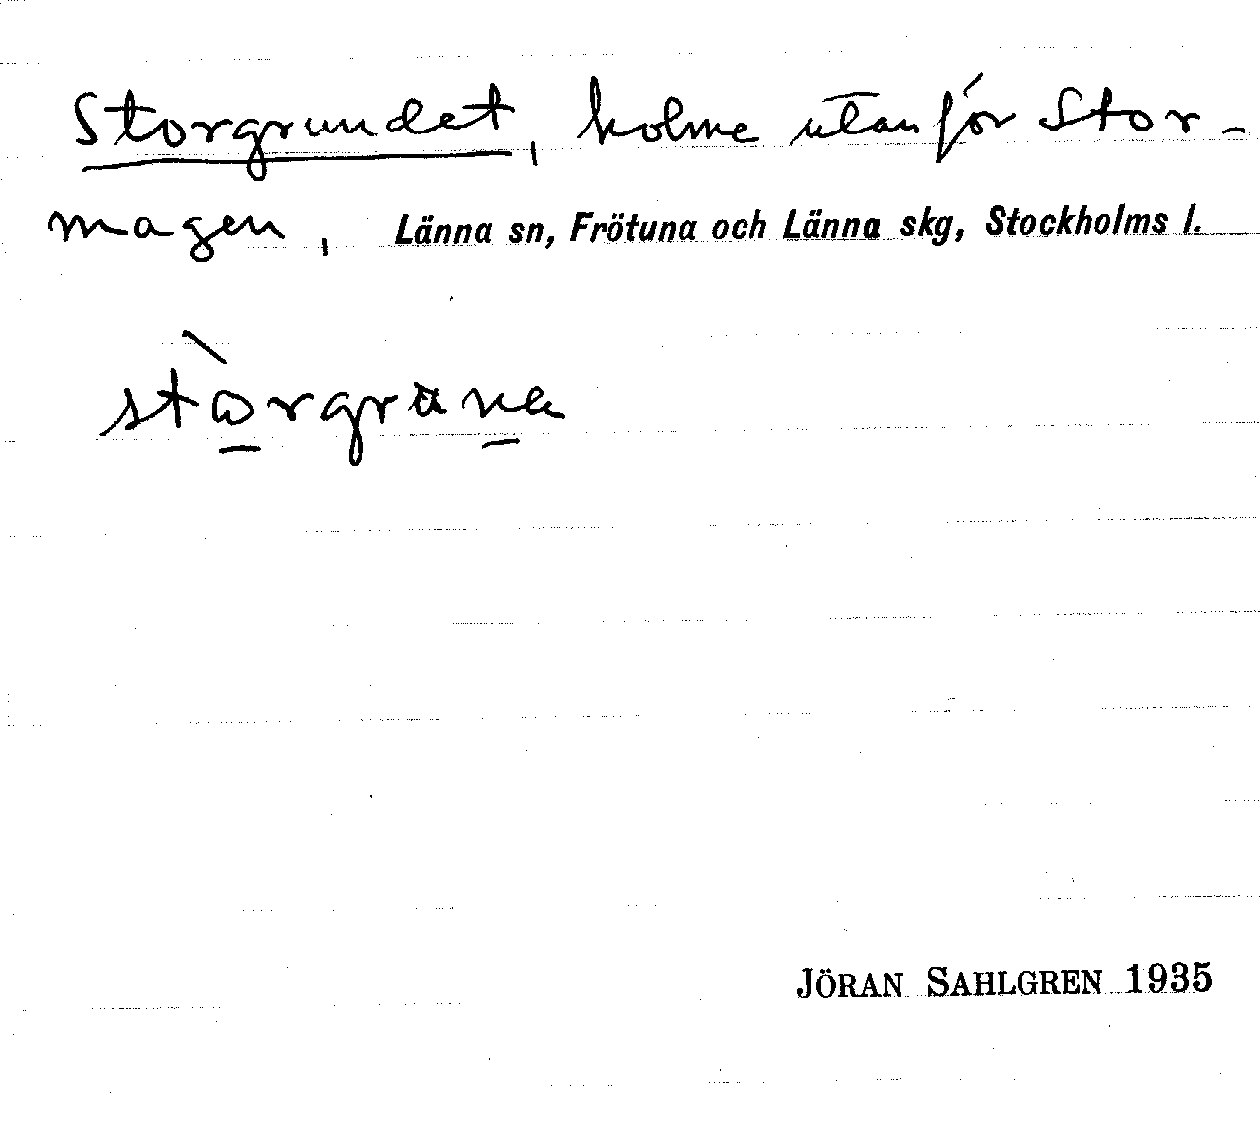 Storgrundet, holme utanför Stor-
magen, Länna sn, Frötuna och Länna skg, Stockholms l.
stòrgrana
JÖRAN SAHLGREN 1935